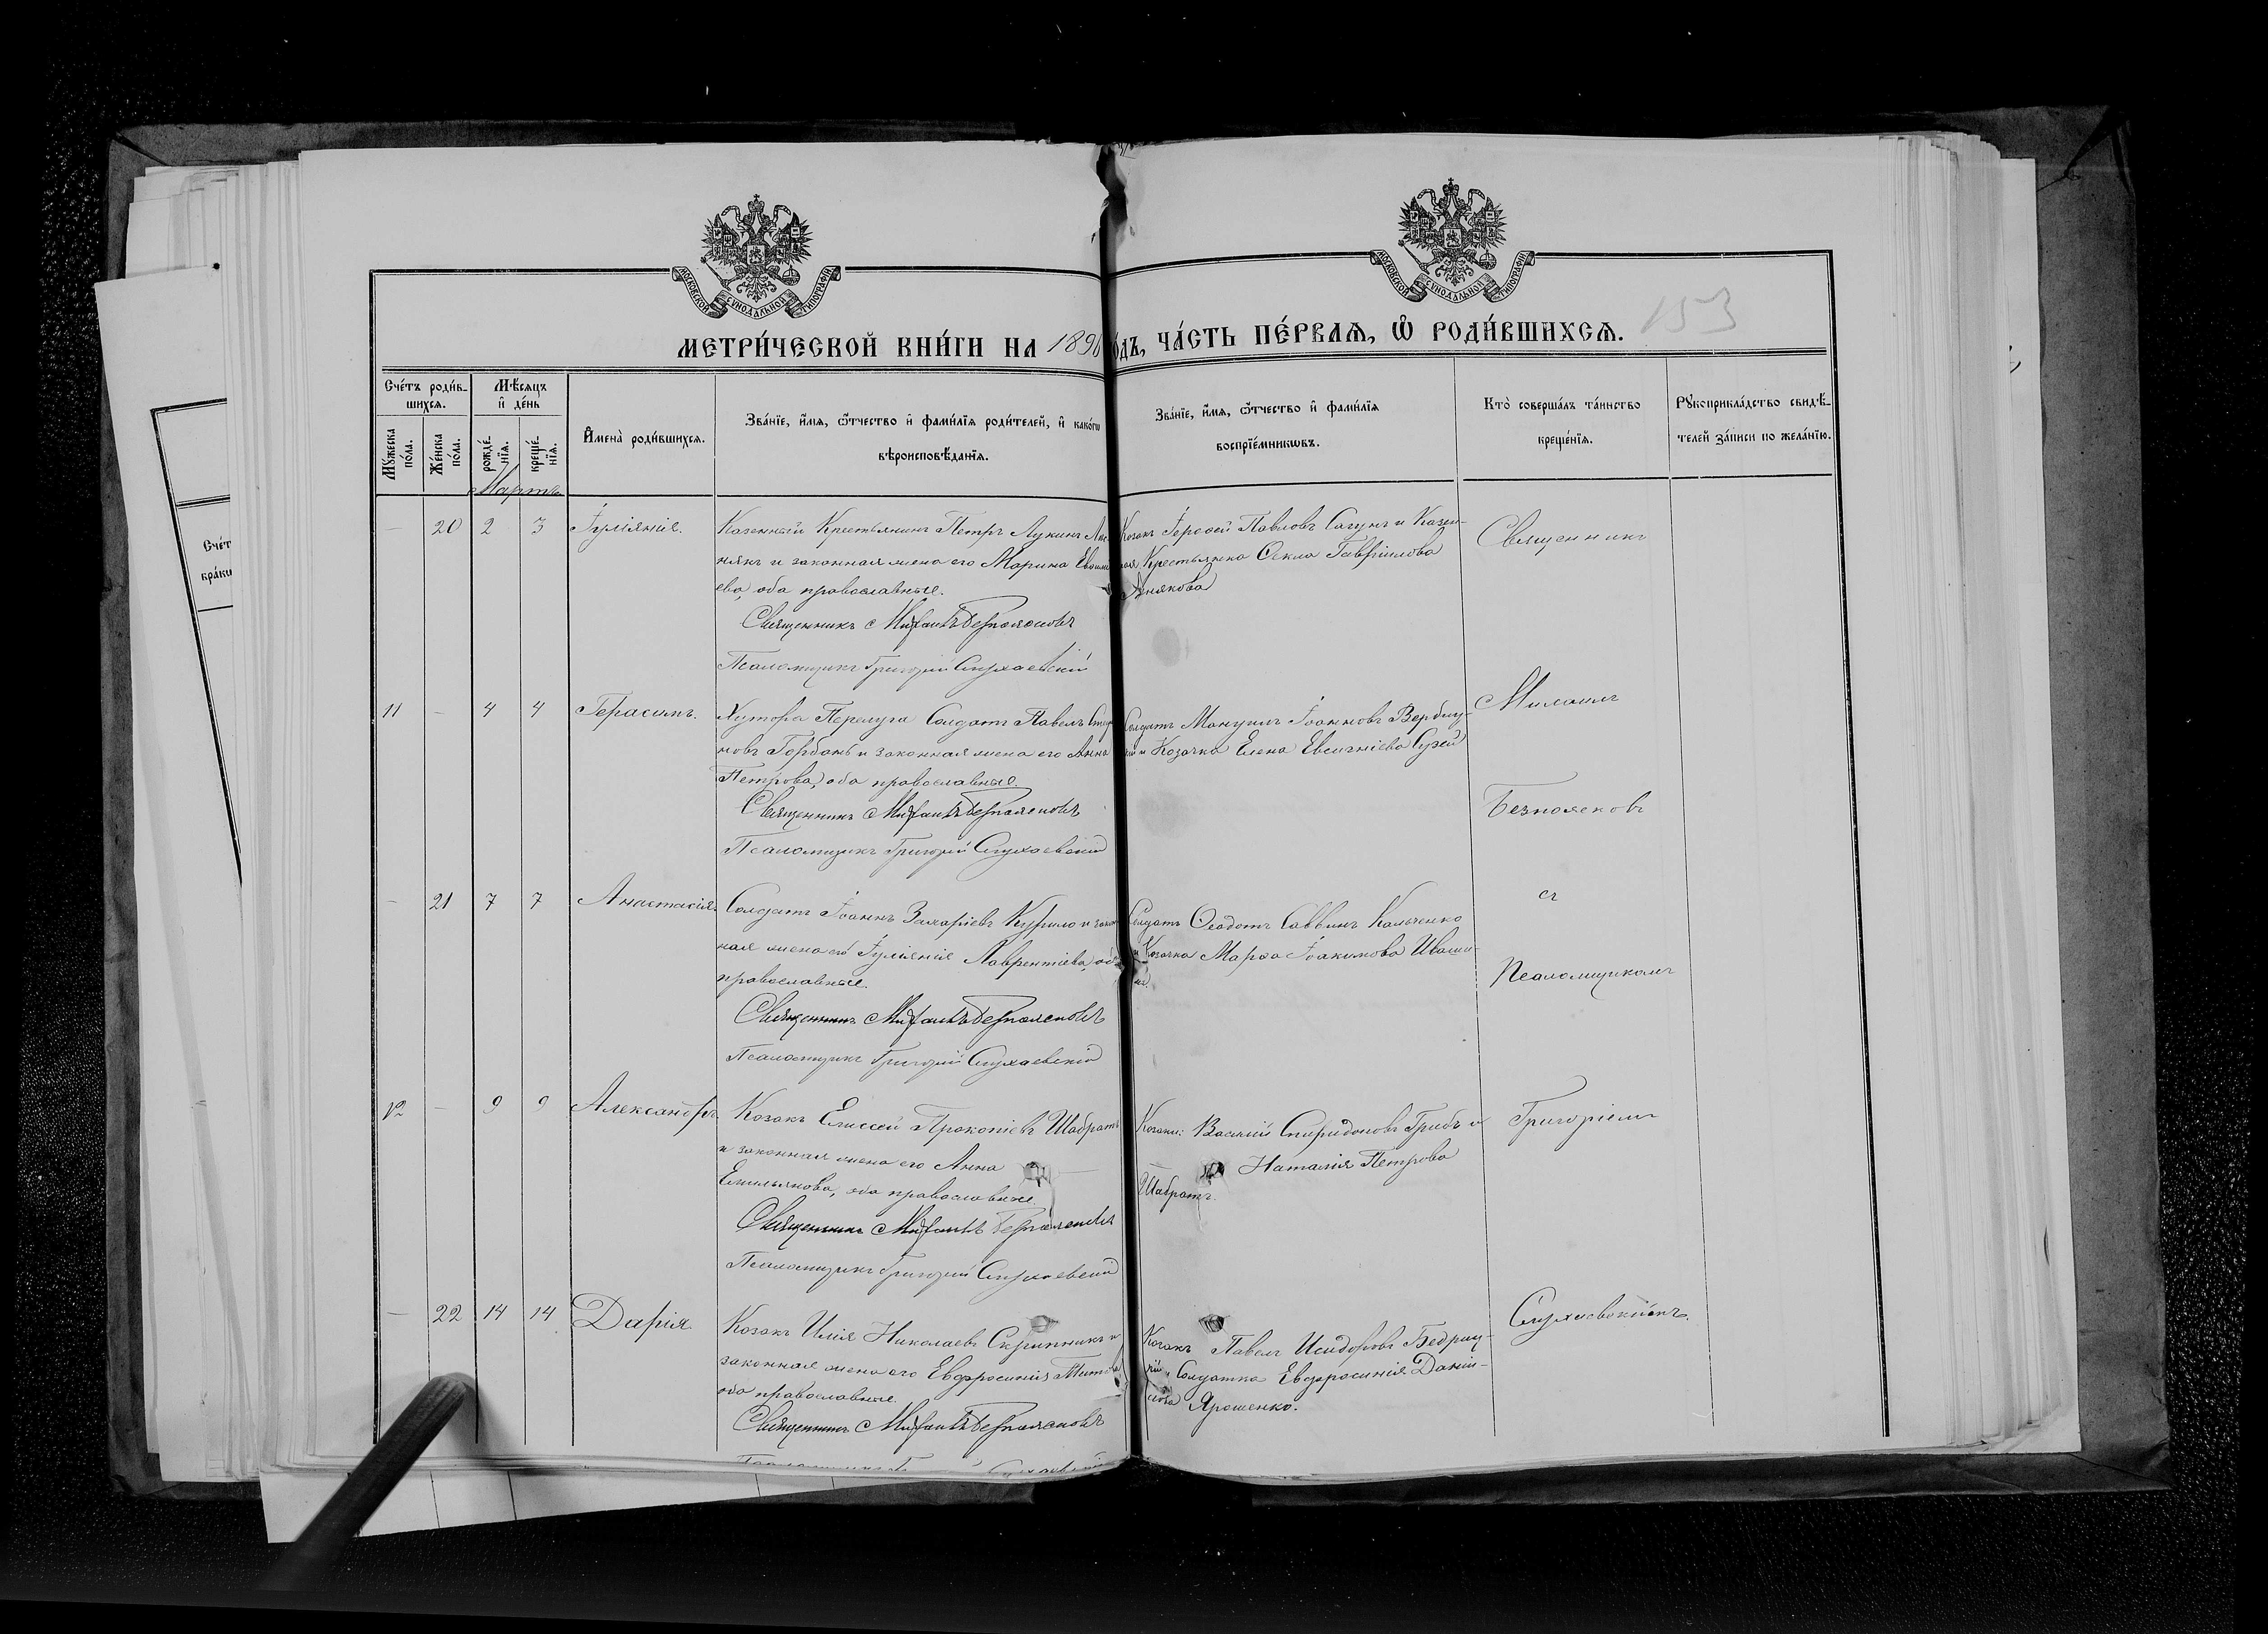 МОСКОВСКОЙ СѴНОДАЛЬНОЙ ТИПОГРАФІИ
МОСКОВСКОЙ СѴНОДАЛЬНОЙ ТИПОГРАФІИ
153
МЕТРИ́ЧЕСКОЙ КНИ́ГИ НА 1890 ОДЪ, ЧА́СТЬ ПЕ́РВАѦ, Ѽ РОДИ́ВШИХСѦ.
Сче́тъ роди́в-
шихсѧ.
Мꙋ́жеска по́ла.
Же́нска по́ла.
Мѣ́сѧцъ и҆ де́нь
рожде́-
нїѧ.
креще́-
нїѧ.
И҆мена̀ роди́вшихсѧ.
Зва́нїе, и҆́мѧ, ѻ҆́тчество и҆ фами́лїѧ роди́телей, и҆ како́гѡ
вѣроисповѣ́данїѧ.
Зва́нїе, и҆́мѧ, ѻ҆́тчество и҆ фами́лїѧ
воспрїе́мникѡвъ.
Кто̀ соверша́лъ та́инство
креще́нїѧ.
Рꙋкоприкла́дство свидѣ́-
телей за́писи по жела́нїю.
Мартъ
20 2 3 Іуліянія.
Казенный Крестьянинъ Петръ Лукинъ
някъ и законная жена его Марина
ева, оба православные.
Священникъ Михаилъ Безпоясновъ
Псаломщикъ Григорій Слухаевскій
Козакъ Герасій Павловъ Сагунъ и Казен-
ная Крестьянка Ѳекла Гавріилова
Священникъ
11 4 4 Герасимъ.
Хутора Перелуга Солдатъ Павелъ
новъ Горбань и законная жена его Анна
Петрова, оба православные.
Священникъ Михаилъ Безпоясновъ
Псаломщикъ Григорій Слухаевскій
Солдатъ Мануилъ Іоанновъ Вербиц-
кій и Козачка Елена Евсигніева Сузей
Михаилъ
Безпоясновъ
21 7 7 Анастасія.
Солдатъ Іоаннъ Захаріевъ Курило и закон
ная жена его Іуліянія Лаврентіева, оба
православные.
Священникъ Михаилъ Безпоясновъ
Псаломщикъ Григорій Слухаевскій
Солдатъ Ѳеодотъ Саввинъ Кальченко
и Козачка Марѳа Іоакимова Иваши-
на
съ
Псаломщикомъ
12 9 9 Александръ.
Козакъ Елисей Прокопіевъ Шабратъ
и законная жена его Анна
Емильянова, оба православные.
Священникъ Михаилъ Безпоясновъ
Псаломщикъ Григорій Слухаевскій
Козаки: Василій Спиридоновъ Грибъ и
Наталія Петрова
Шабратъ.
Григоріемъ
22 14 14 Дарія.
Козакъ Илія Николаевъ Скрипникъ и
законная жена его Евфросинія Титова
оба православные.
Священникъ Михаилъ Безпоясновъ
Козакъ Павелъ Исидоровъ Бедриц-
кій и Солдатка Евфросинія Даніи-
лова Ярошенко.
Слухаевскимъ.
Сче́т
бра́кѡ